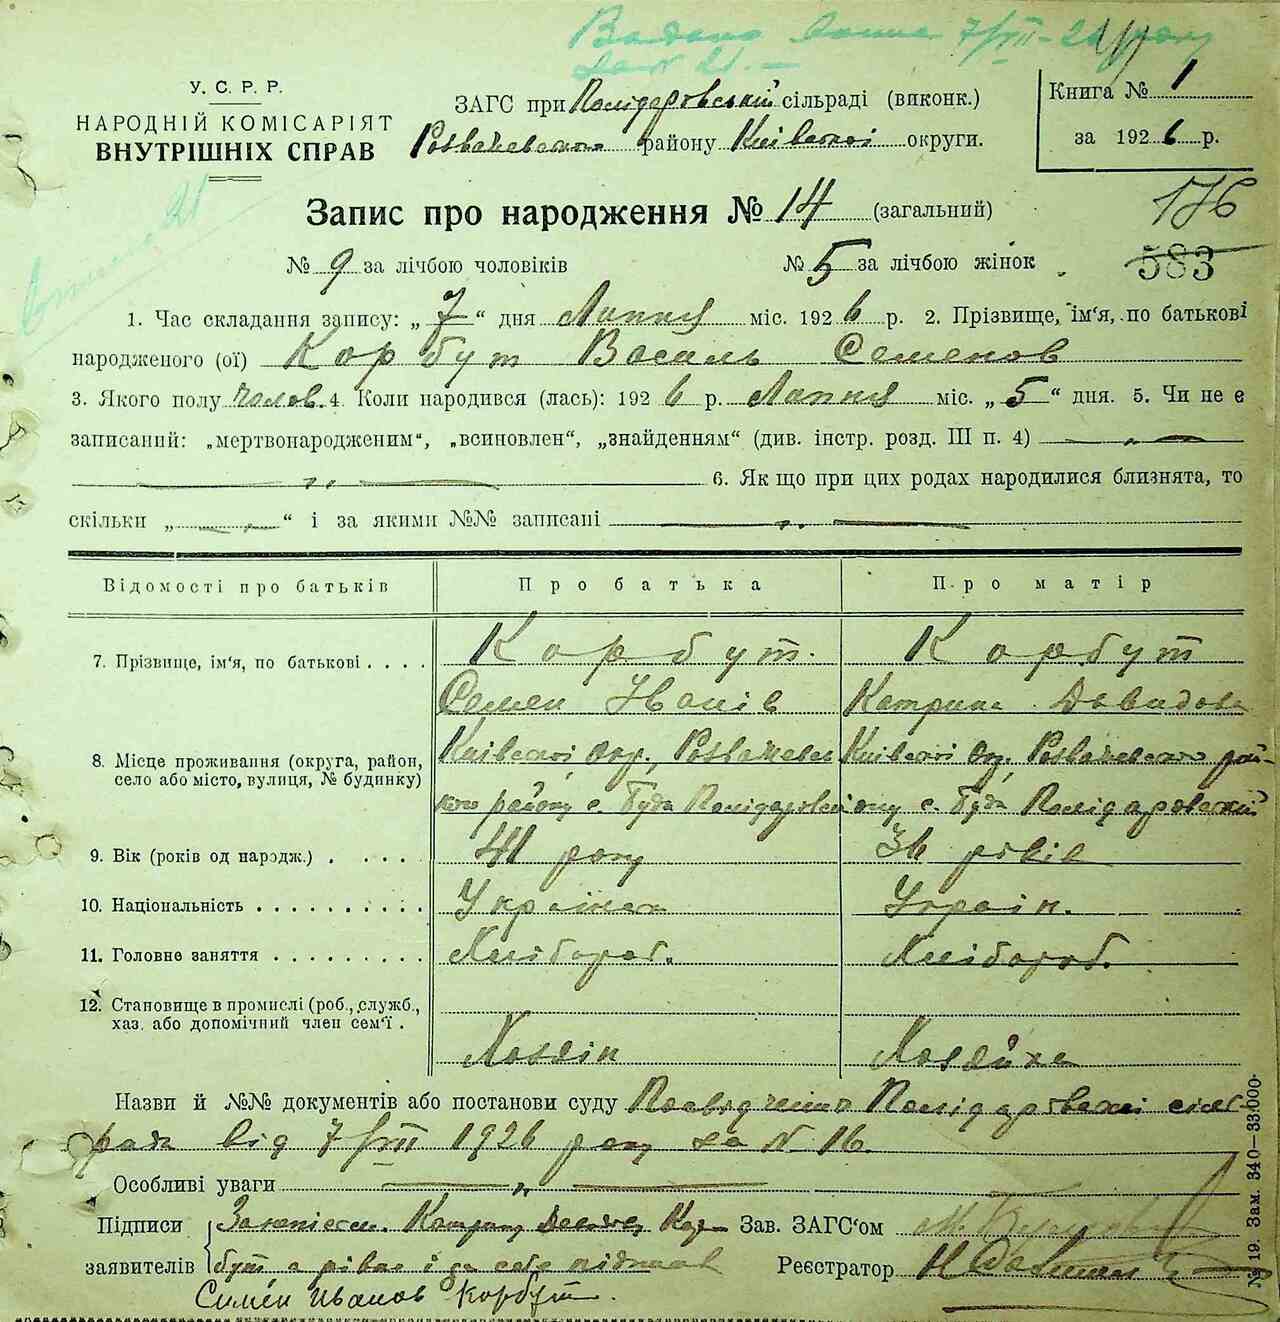 Видано 7/VII-26 року
№ 21. –
У. С. Р. Р.
НАРОДНІЙ КОМІСАРІЯТ
ВНУТРІШНІХ СПРАВ
ЗАГС при Полідаровській сільраді (виконк.)
Розважевського району Київської округи.
Книга № 1
за 1926 р.
21
Запис про народження № 14 (загальний)
176
№ 9 за лічбою чоловіків № 5 за лічбою жінок
583
1. Час складання запису: „ 7 “ дня Липня міс. 1926 р. 2. Прізвище, ім'я, по батькові
народженого (ої) Корбут Василь Семенов
3. Якого полу чолов. 4. Коли народився (лась): 1926 р. Липня міс. „ 5 “ дня. 5. Чи не є
записаний: „мертвонародженим“, „всиновлен“, „знайденням“ (див. інстр. розд. III п. 4) — „ —
— „ — 6. Як що при цих родах народилися близнята, то
скільки „ — “ і за якими №№ записані — „ —
Відомості про батьків Про батька Про матір
7. Прізвище, ім'я, по батькові . . . . Корбут. Корбут
Семен Іванів Катрина Давидова
8. Місце проживання (округа, район, Київської окр., Розважевсь Київської окр. Розважевського рай-
село або місто, вулиця, № будинку) кого району с. Буда Полідаровськ ону с. Буда Полідаровській
9. Вік (років од народж.) . . . . . 41 року 36 років
10. Національність . . . . . . . . . . Українец Україн.
11. Головне заняття . . . . . . . . . Хлібороб. Хлібороб.
12. Становище в промислі (роб., служб.,
хаз. або допомічний член сем'ї . Хазяїн Хазяйка
Назви й №№ документів або постанови суду Посвідчення Полідаровської сіль-
ради від 7/VII 1926 року за № 16.
Особливі уваги — „ —
Підписи Катрину Кор- Зав. ЗАГС'ом
заявителів бут а рівно і за себе підписав Реєстратор
Симен Иванов Корбут.
№ 19. Зам. 340—33.000.